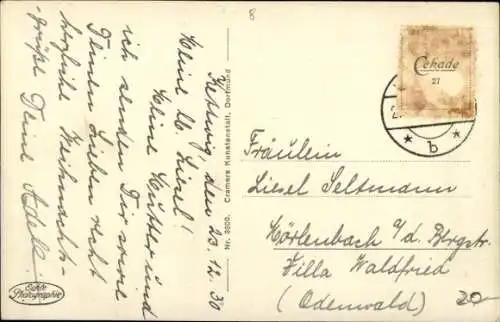 Kettwig, den 23.12.30
Meine lb. Liesel!
Meine Mutter und
ich senden Dir sowie
Deinen Lieben recht
herzliche Weihnachts-
grüße Deine Adele.
Echte
Photographie
Nr. 3200. Cramers Kunstanstalt, Dortmund
8
Cekade
27
b
Fräulein
Liesel Seltmann
Mörlenbach a/d. Bergstr.
Villa Waldfried
(Odenwald)
20